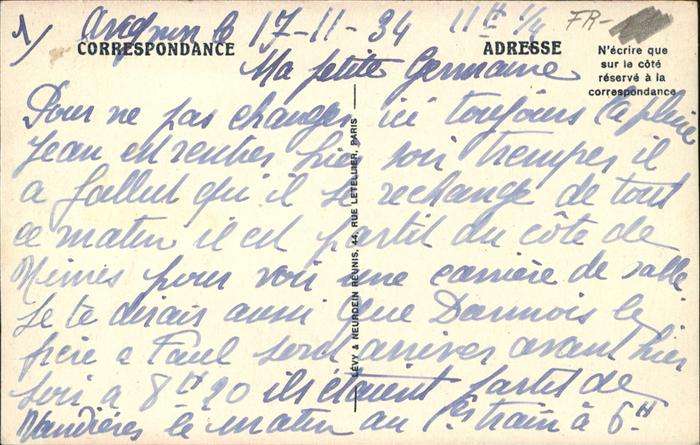 1/ Avignon le 17-11-34 11H 1/4 FR-
CORRESPONDANCE
ADRESSE
N'écrire que
sur le côté
réservé à la
correspondance
Ma petite Germaine
Pour ne pas changer ici toujours la pluie
Jean est rentrer hier soir tremper il
a fallut qu'il se rechange de tout
ce matin il est partit du côte de
Nimes pour voir une carrière de sable
Je te dirais aussi que Darnnois le
frère a Paul sont arriver avant hier
soir a 8H20 ils étaient partit de
Vandières le matin au 1er train à 6H
LÉVY & NEURDEIN RÉUNIS, 44, RUE LETELLIER, PARIS